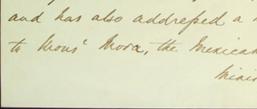 and has also addressed a
to Mons' Mora, the Mexican